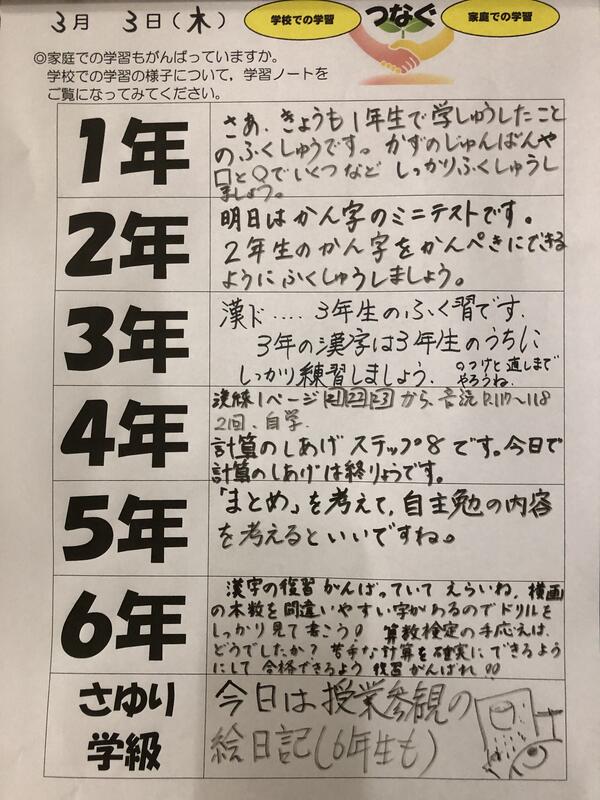 3月 3日(木)
学校での学習 つなぐ 家庭での学習
◎家庭での学習もがんばっていますか。
学校での学習の様子について,学習ノートを
ご覧になってみてください。
1年
さあ、きょうも1年生で学しゅうしたこと
のふくしゅうです。かずのじゅんばんや
□と○でいくつなど しっかりふくしゅうし
ましょう。
2年
明日はかん字のミニテストです。
2年生のかん字をかんぺきにできる
ようにふくしゅうしましょう。
3年
漢ド‥‥3年生のふく習です.
3年の漢字は3年生のうちに
しっかり練習しましょう.
○つけと直しまで
やろうね.
4年
漢練1ページ 21 22 23 から、音流P.117~118
2回、自学.
計算のしあげステップ8です。今日で
計算のしあげは終りょうです。
5年
「まとめ」を考えて,自主勉の内容
を考えるといいですね。
6年
漢字の復習がんばっていてえらいね,横画
の本数を間違いやすい字があるのでドリルを
しっかり見て書こう! 算数検定の手応えは、
どうでしたか?苦手な計算を確実にできるよう
にして合格できるよう復習がんばれ!!
さゆり
学級
今日は授業参観の
絵日記(6年生も)